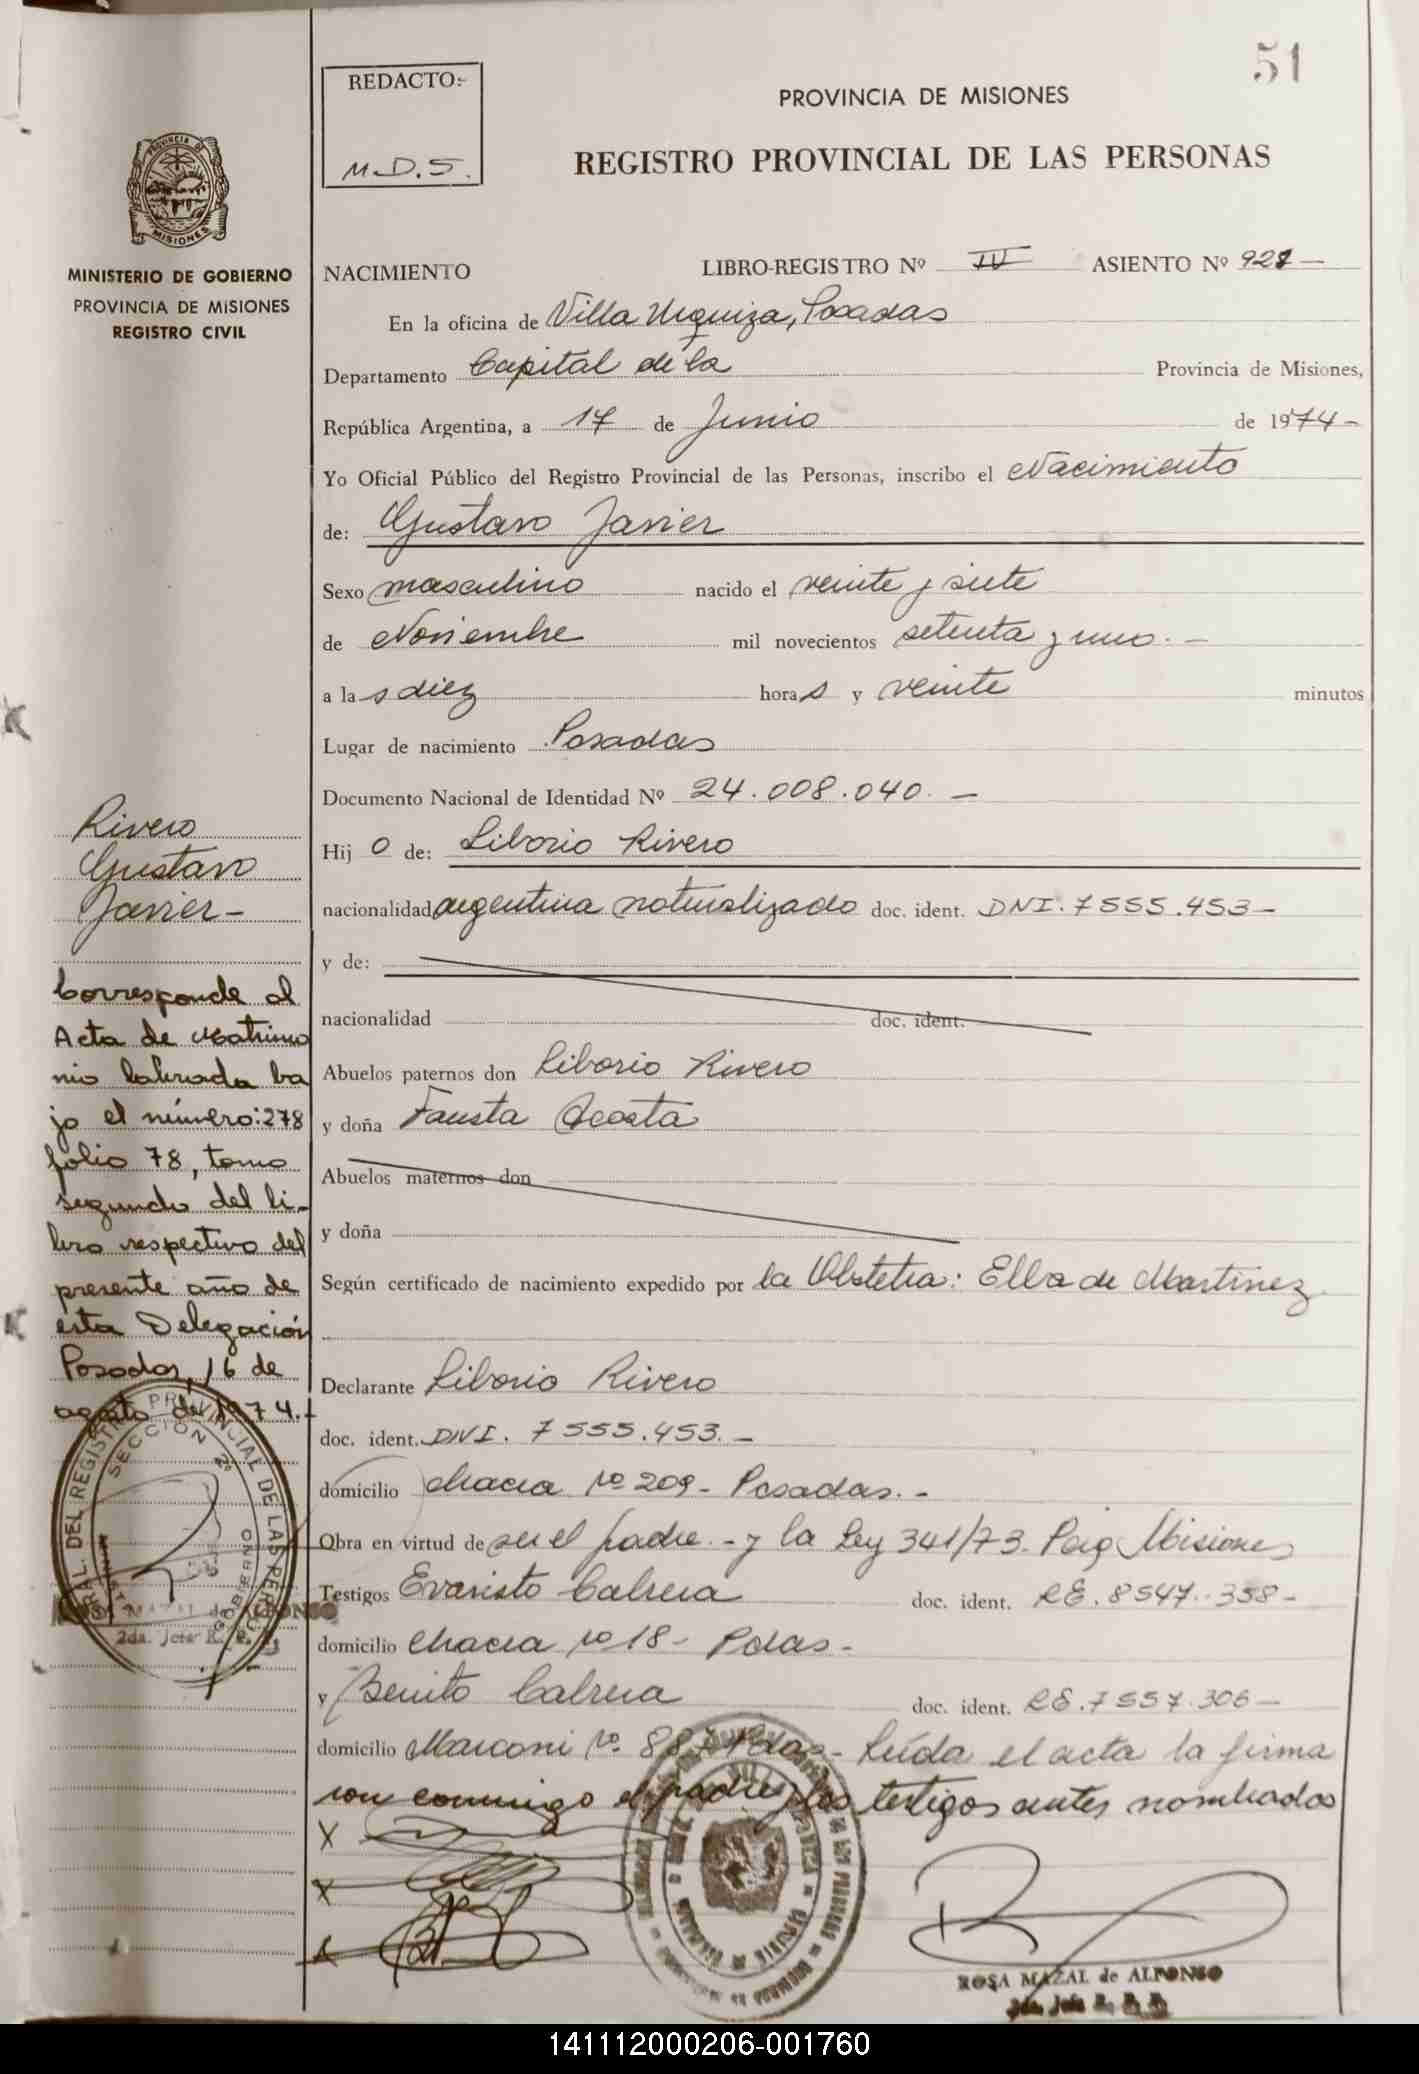 51
REDACTO:-
M.D.S.
PROVINCIA DE MISIONES
REGISTRO PROVINCIAL DE LAS PERSONAS
PROVINCIA DE
MISIONES
MINISTERIO DE GOBIERNO
PROVINCIA DE MISIONES
REGISTRO CIVIL
NACIMIENTO LIBRO-REGISTRO Nº IV ASIENTO Nº 921 —
En la oficina de Villa Urquiza, Posadas
Departamento Capital de la Provincia de Misiones,
República Argentina, a 17 de Junio de 1974 -
Yo Oficial Público del Registro Provincial de las Personas, inscribo el Nacimiento
de: Gustavo Javier
Sexo masculino nacido el veinte y siete
de Noviembre mil novecientos setenta y uno. -
a la s diez hora s y veinte minutos
Lugar de nacimiento Posadas
Documento Nacional de Identidad Nº 24.008.040. —
Hij o de: Liborio Rivero
nacionalidad argentina naturalizado doc. ident. DNI. 7555.453 -
y de:
nacionalidad doc. ident.
Abuelos paternos don Liborio Rivero
y doña Fausta Acosta
Abuelos maternos don
y doña
Según certificado de nacimiento expedido por la Obstetra: Elba de Martinez
Declarante Liborio Rivero
doc. ident. DNI. 7555.453. -
domicilio Chacra nº 209 - Posadas. -
Obra en virtud de ser el padre. - y la Ley 341/73. Misiones
Testigos Evaristo Cabrera doc. ident. RE. 8547.358 -
domicilio Chacra nº 18 - Pdas -
y Benito Cabrera doc. ident. RE. 7557.306 —
domicilio Marconi nº. Pdas - Leída el acta la firma
con conmigo el padre y los testigos antes nombrados
X
X
X
ROSA MAZAL de ALFONSO
2da. Jefe R. P. P.
Rivero
Gustavo
Javier -
Corresponde al
Acta de Matrimo
nio labrada ba
jo el número: 278
folio 78, tomo
segundo del li-
bro respectivo del
presente año de
esta Delegación
Posadas, 16 de
agosto de 1974.-
DEL REGISTRO PROVINCIAL DE LAS PER
SECCION 2º
GOBIERNO
ROSA MAZAL de ALFONSO
2da. Jefe R. P. P.
141112000206-001760